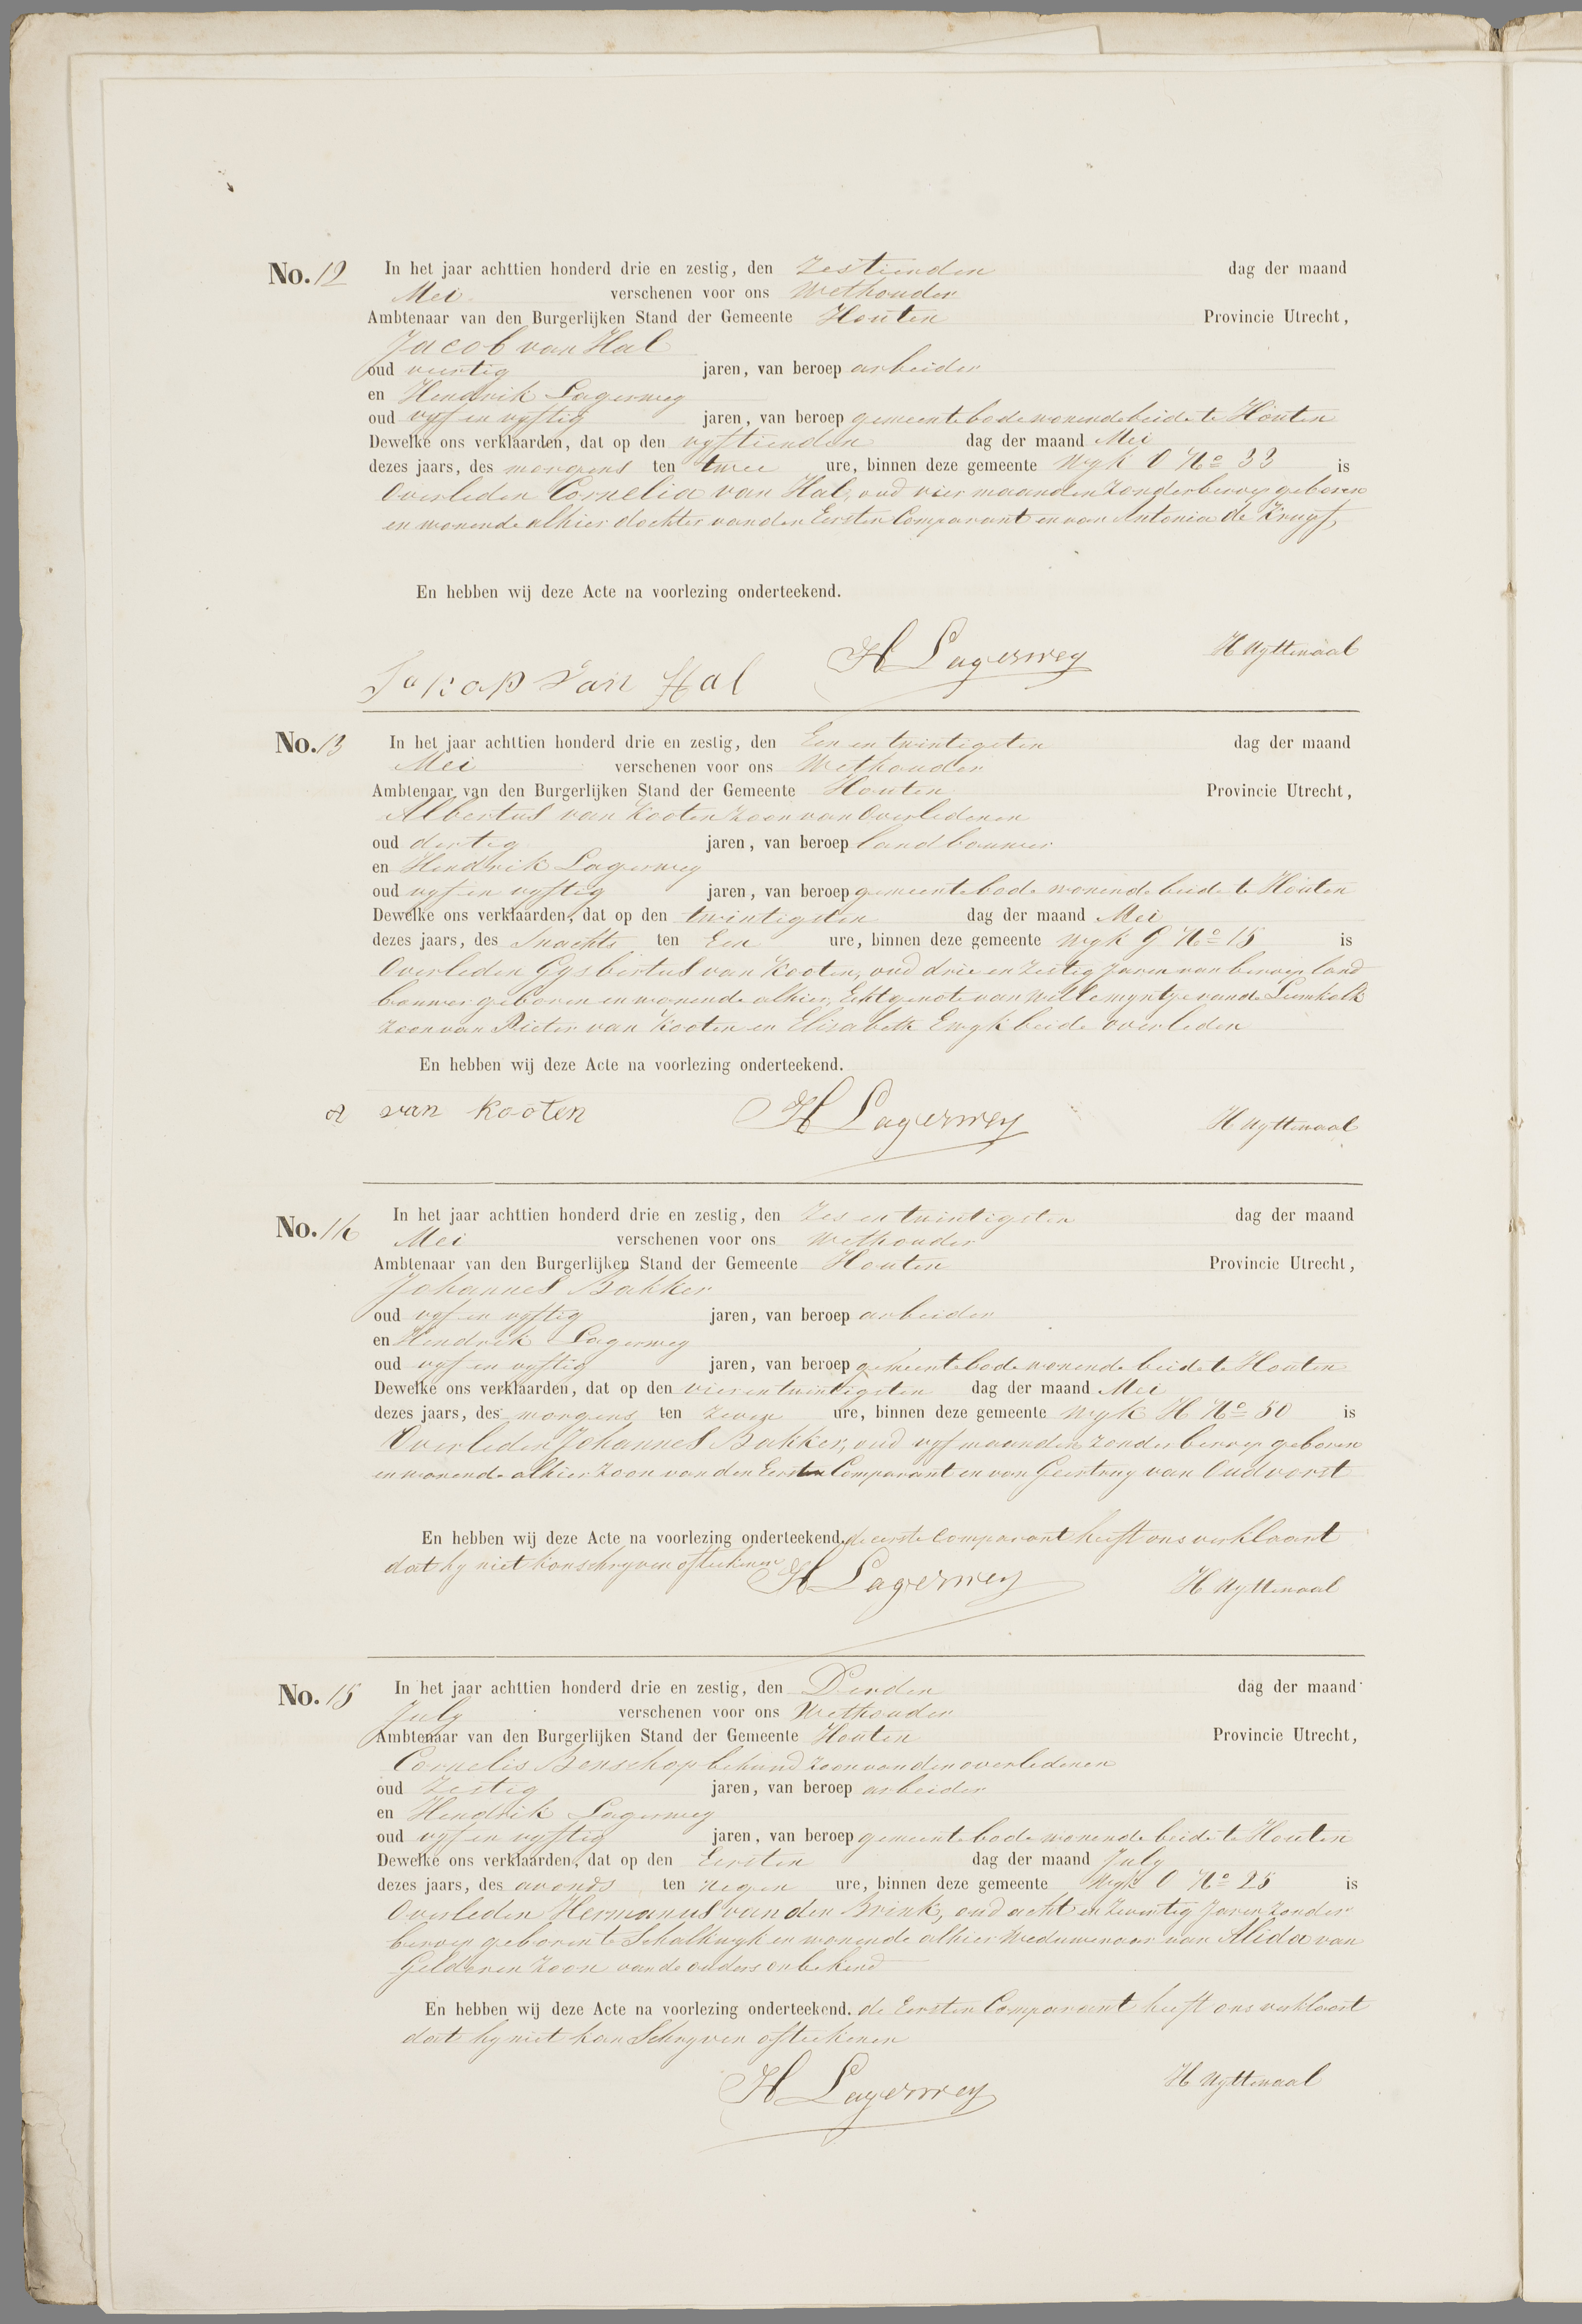 No. 12 In het jaar achttien honderd drie en zestig, den zestienden dag der maand
Mei verschenen voor ons Wethouder
Ambtenaar van den Burgerlijken Stand der Gemeente Houten Provincie Utrecht,
Jacob van Hal
oud veertig jaren, van beroep arbeider
en Hendrik Lagerweg
oud vyf en vyftig jaren, van beroep gemeentebode wonende beide te Houten
Dewelke ons verklaarden, dat op den vyftienden dag der maand Mei
dezes jaars, des morgens ten twee ure, binnen deze gemeente Wyk O No 33 is
Overleden Cornelia van Hal, oud vier maanden zonder beroep geboren
en wonende alhier dochter van den Eersten Comparant en van Antonia de Kruyf,
En hebben wij deze Acte na voorlezing onderteekend.
Jakop Van Hal H Lagerweg H Uyttewaal
No. 13 In het jaar achttien honderd drie en zestig, den Een en twintigsten dag der maand
Mei verschenen voor ons Wethouder
Ambtenaar van den Burgerlijken Stand der Gemeente Houten Provincie Utrecht,
Albertus van Kooten zoon van Overledenen
oud dertig jaren, van beroep landbouwer
en Hendrik Lagerweg
oud vyf en vyftig jaren, van beroep gemeentebode wonende beide te Houten
Dewelke ons verklaarden, dat op den twintigsten dag der maand Mei
dezes jaars, des Snachts ten Een ure, binnen deze gemeente Wyk G No 15 is
Overleden Gysbertus van Kooten, oud drie en zestig jaren van beroep land
bouwer geboren en wonende alhier, Echtgenote van Willemyntje van de Lumkolk
zoon van Pieter van Kooten en Elisabeth Ewyk beide overleden
En hebben wij deze Acte na voorlezing onderteekend.
a van kooten H Lagerweg H Uyttewaal
No. 14 In het jaar achttien honderd drie en zestig, den Zes en twintigsten dag der maand
Mei verschenen voor ons Wethouder
Ambtenaar van den Burgerlijken Stand der Gemeente Houten Provincie Utrecht,
Johannes Bakker
oud vyf en vyftig jaren, van beroep arbeider
en Hendrik Lagerweg
oud vyf en vyftig jaren, van beroep gemeentebode wonende beide te Houten
Dewelke ons verklaarden, dat op den vier en twintigsten dag der maand Mei
dezes jaars, des morgens ten zeven ure, binnen deze gemeente Wyk H No 50 is
Overleden Johannes Bakker, oud vyf maanden zonder beroep geboren
en wonende alhier zoon van den Eersten Comparant en van Geertruy van Oudvorst
En hebben wij deze Acte na voorlezing onderteekend. de eerste Comparant heeft ons verklaart
dat hy niet kan schryven of teekenen
H Lagerweg H Uyttewaal
No. 15 In het jaar achttien honderd drie en zestig, den Derden dag der maand
July verschenen voor ons Wethouder
Ambtenaar van den Burgerlijken Stand der Gemeente Houten Provincie Utrecht,
Cornelis Benschop behuwd zoon van den overledenen
oud zestig jaren, van beroep arbeider
en Hendrik Lagerweg
oud vyf en vyftig jaren, van beroep gemeentebode wonende beide te Houten
Dewelke ons verklaarden, dat op den Eersten dag der maand July
dezes jaars, des avonds ten negen ure, binnen deze gemeente Wyk O No 25 is
Overleden Hermanus van den Brink, oud acht en zeventig jaren zonder
beroep geboren te Schalkwyk en wonende alhier Weduwenaar van Alida van
Gelderen zoon van de ouders onbekend
En hebben wij deze Acte na voorlezing onderteekend. de Eersten Comparant heeft ons verklaart
dat hy niet kan Schryven of teekenen
H Lagerweg H Uyttewaal